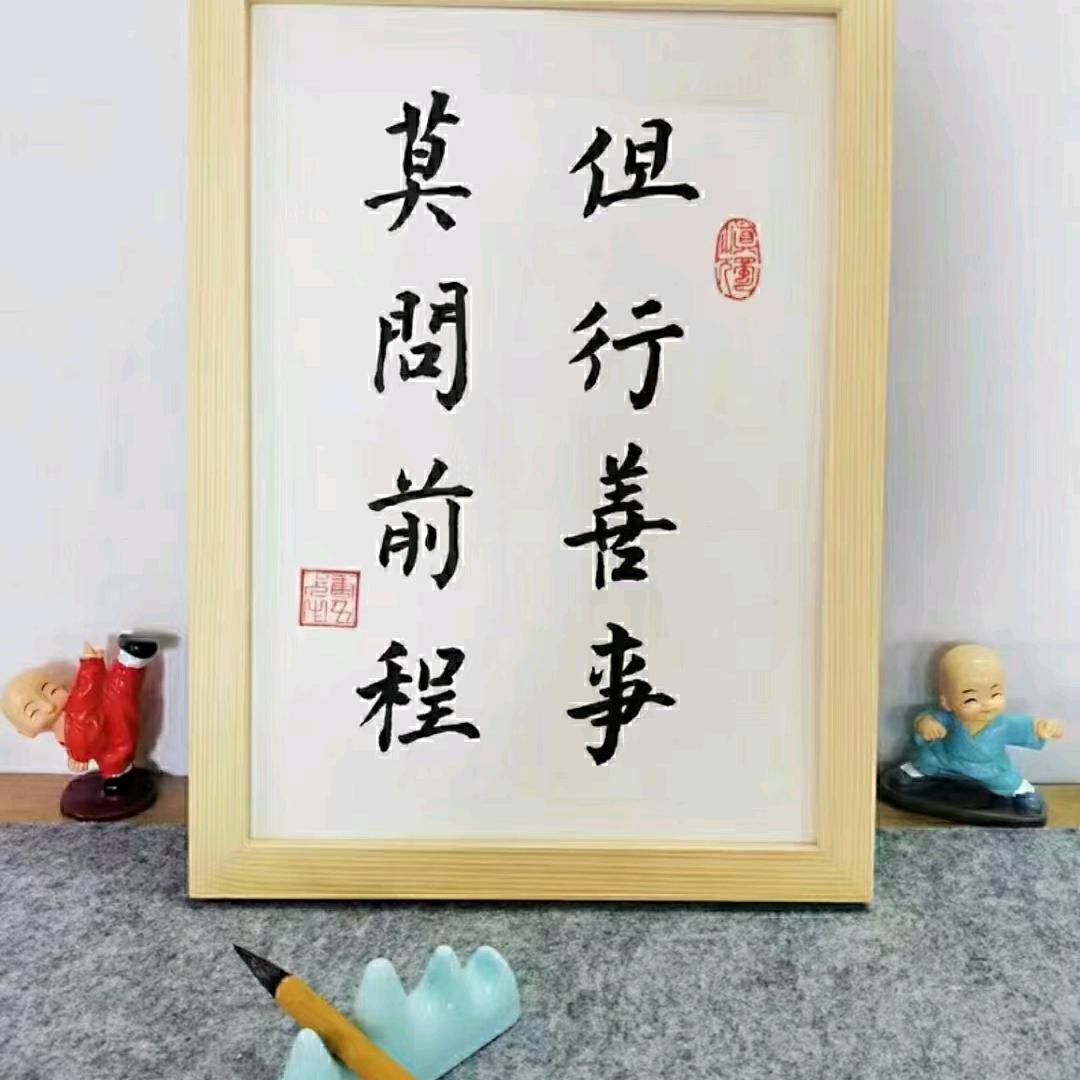 但行善事
莫問前程
慎獨